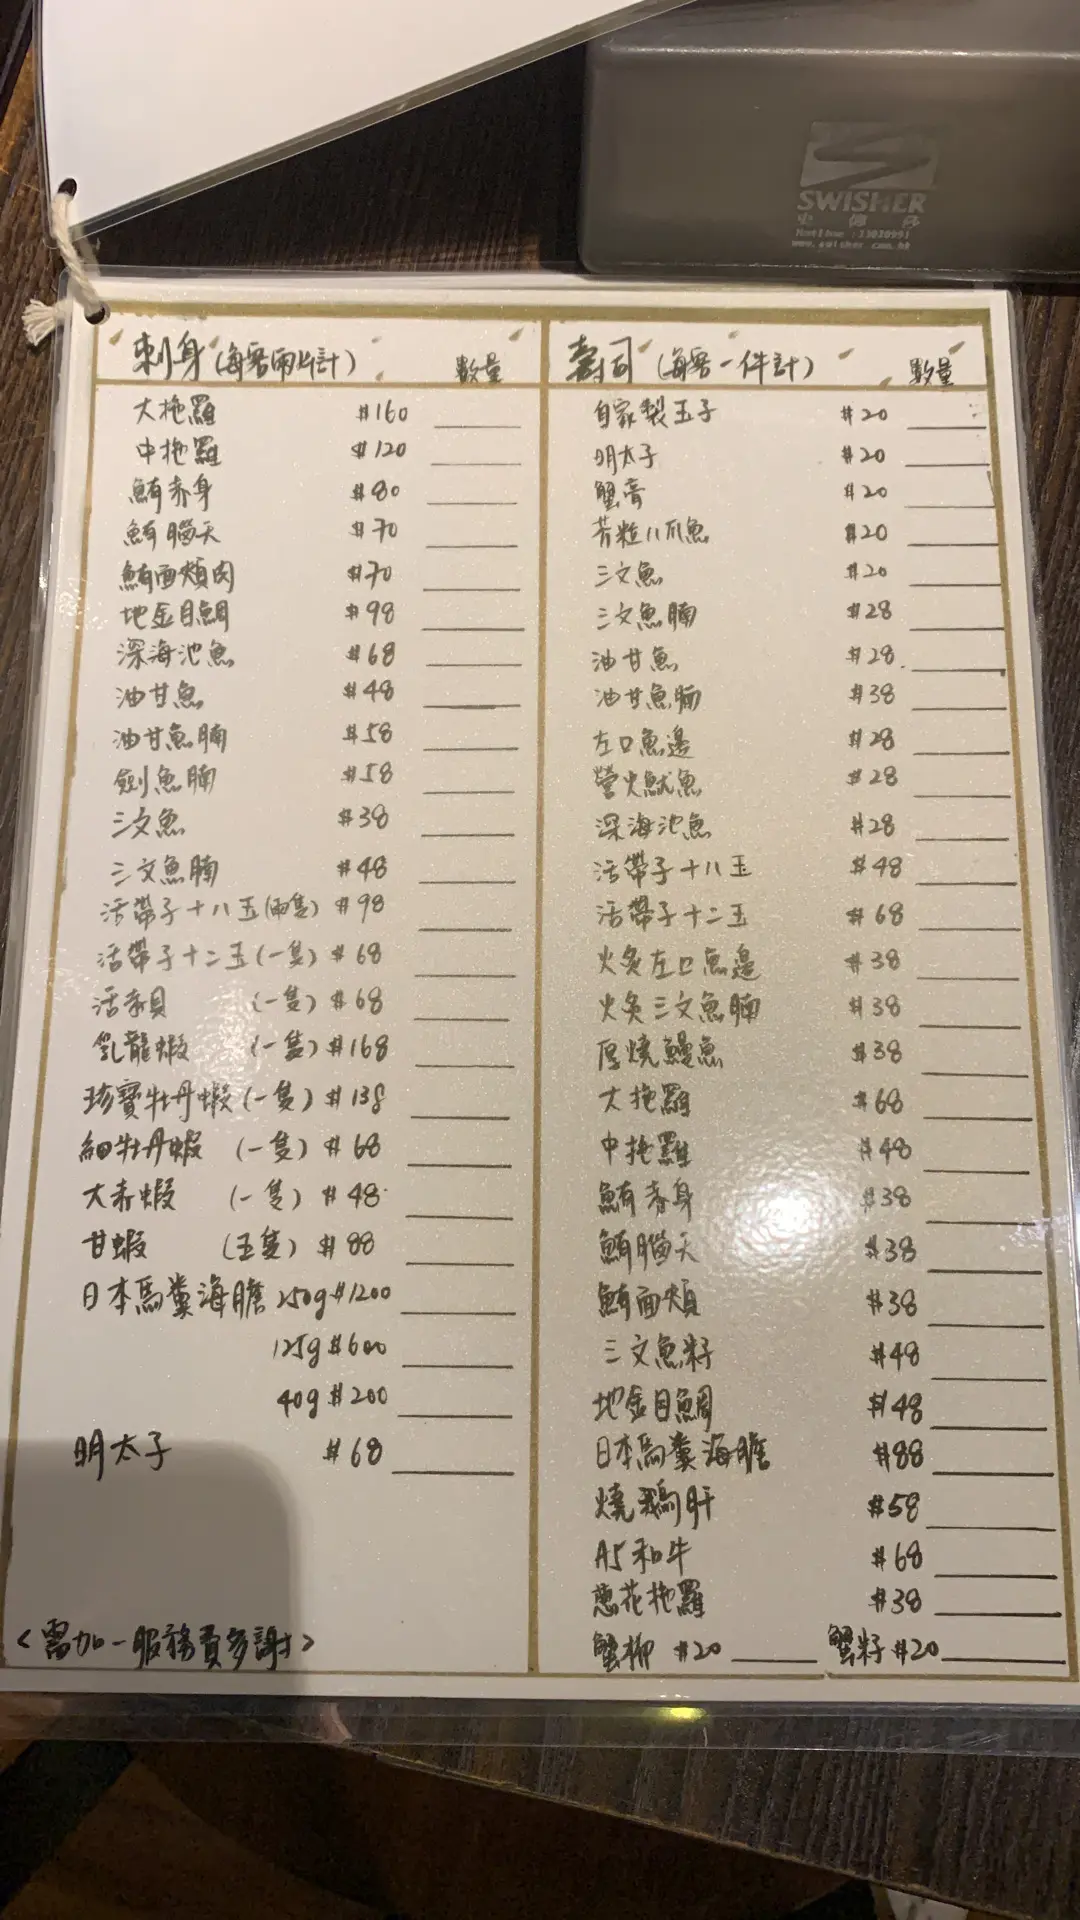 SWISHER
Hotline : 23020991
www.swisher.com.hk
刺身(海客兩片計) 數量
大拖羅 $160
中拖羅 $120
鮪赤身 $80
鮪腦天 $70
鮪面頰肉 $70
地金目鯛 $98
深海池魚 $68
油甘魚 $48
油甘魚腩 $58
劍魚腩 $58
三文魚 $38
三文魚腩 $48
活帶子十八玉(兩隻) $98
活帶子十二玉(一隻) $68
活赤貝 (一隻) $68
乳龍蝦 (一隻) $168
珍寶牡丹蝦(一隻) $138
細牡丹蝦 (一隻) $68
大赤蝦 (一隻) $48
甘蝦 (五隻) $88
日本馬糞海膽 250g $1200
125g $600
40g $200
明太子 $68
<需加一服務費多謝>
壽司 (海客一件計) 數量
自家製玉子 $20
明太子 $20
蟹膏 $20
芥粒八爪魚 $20
三文魚 $20
三文魚腩 $28
油甘魚 $28
油甘魚腩 $38
左口魚邊 $28
螢火魷魚 $28
深海池魚 $28
活帶子十八玉 $48
活帶子十二玉 $68
火炙左口魚邊 $38
火炙三文魚腩 $38
厚燒鰻魚 $38
大拖羅 $68
中拖羅 $48
鮪赤身 $38
鮪腦天 $38
鮪面頰 $38
三文魚籽 $48
地金目鯛 $48
日本馬糞海膽 $88
燒鵝肝 $58
A5和牛 $68
蔥花拖羅 $38
蟹柳 $20 蟹籽 $20